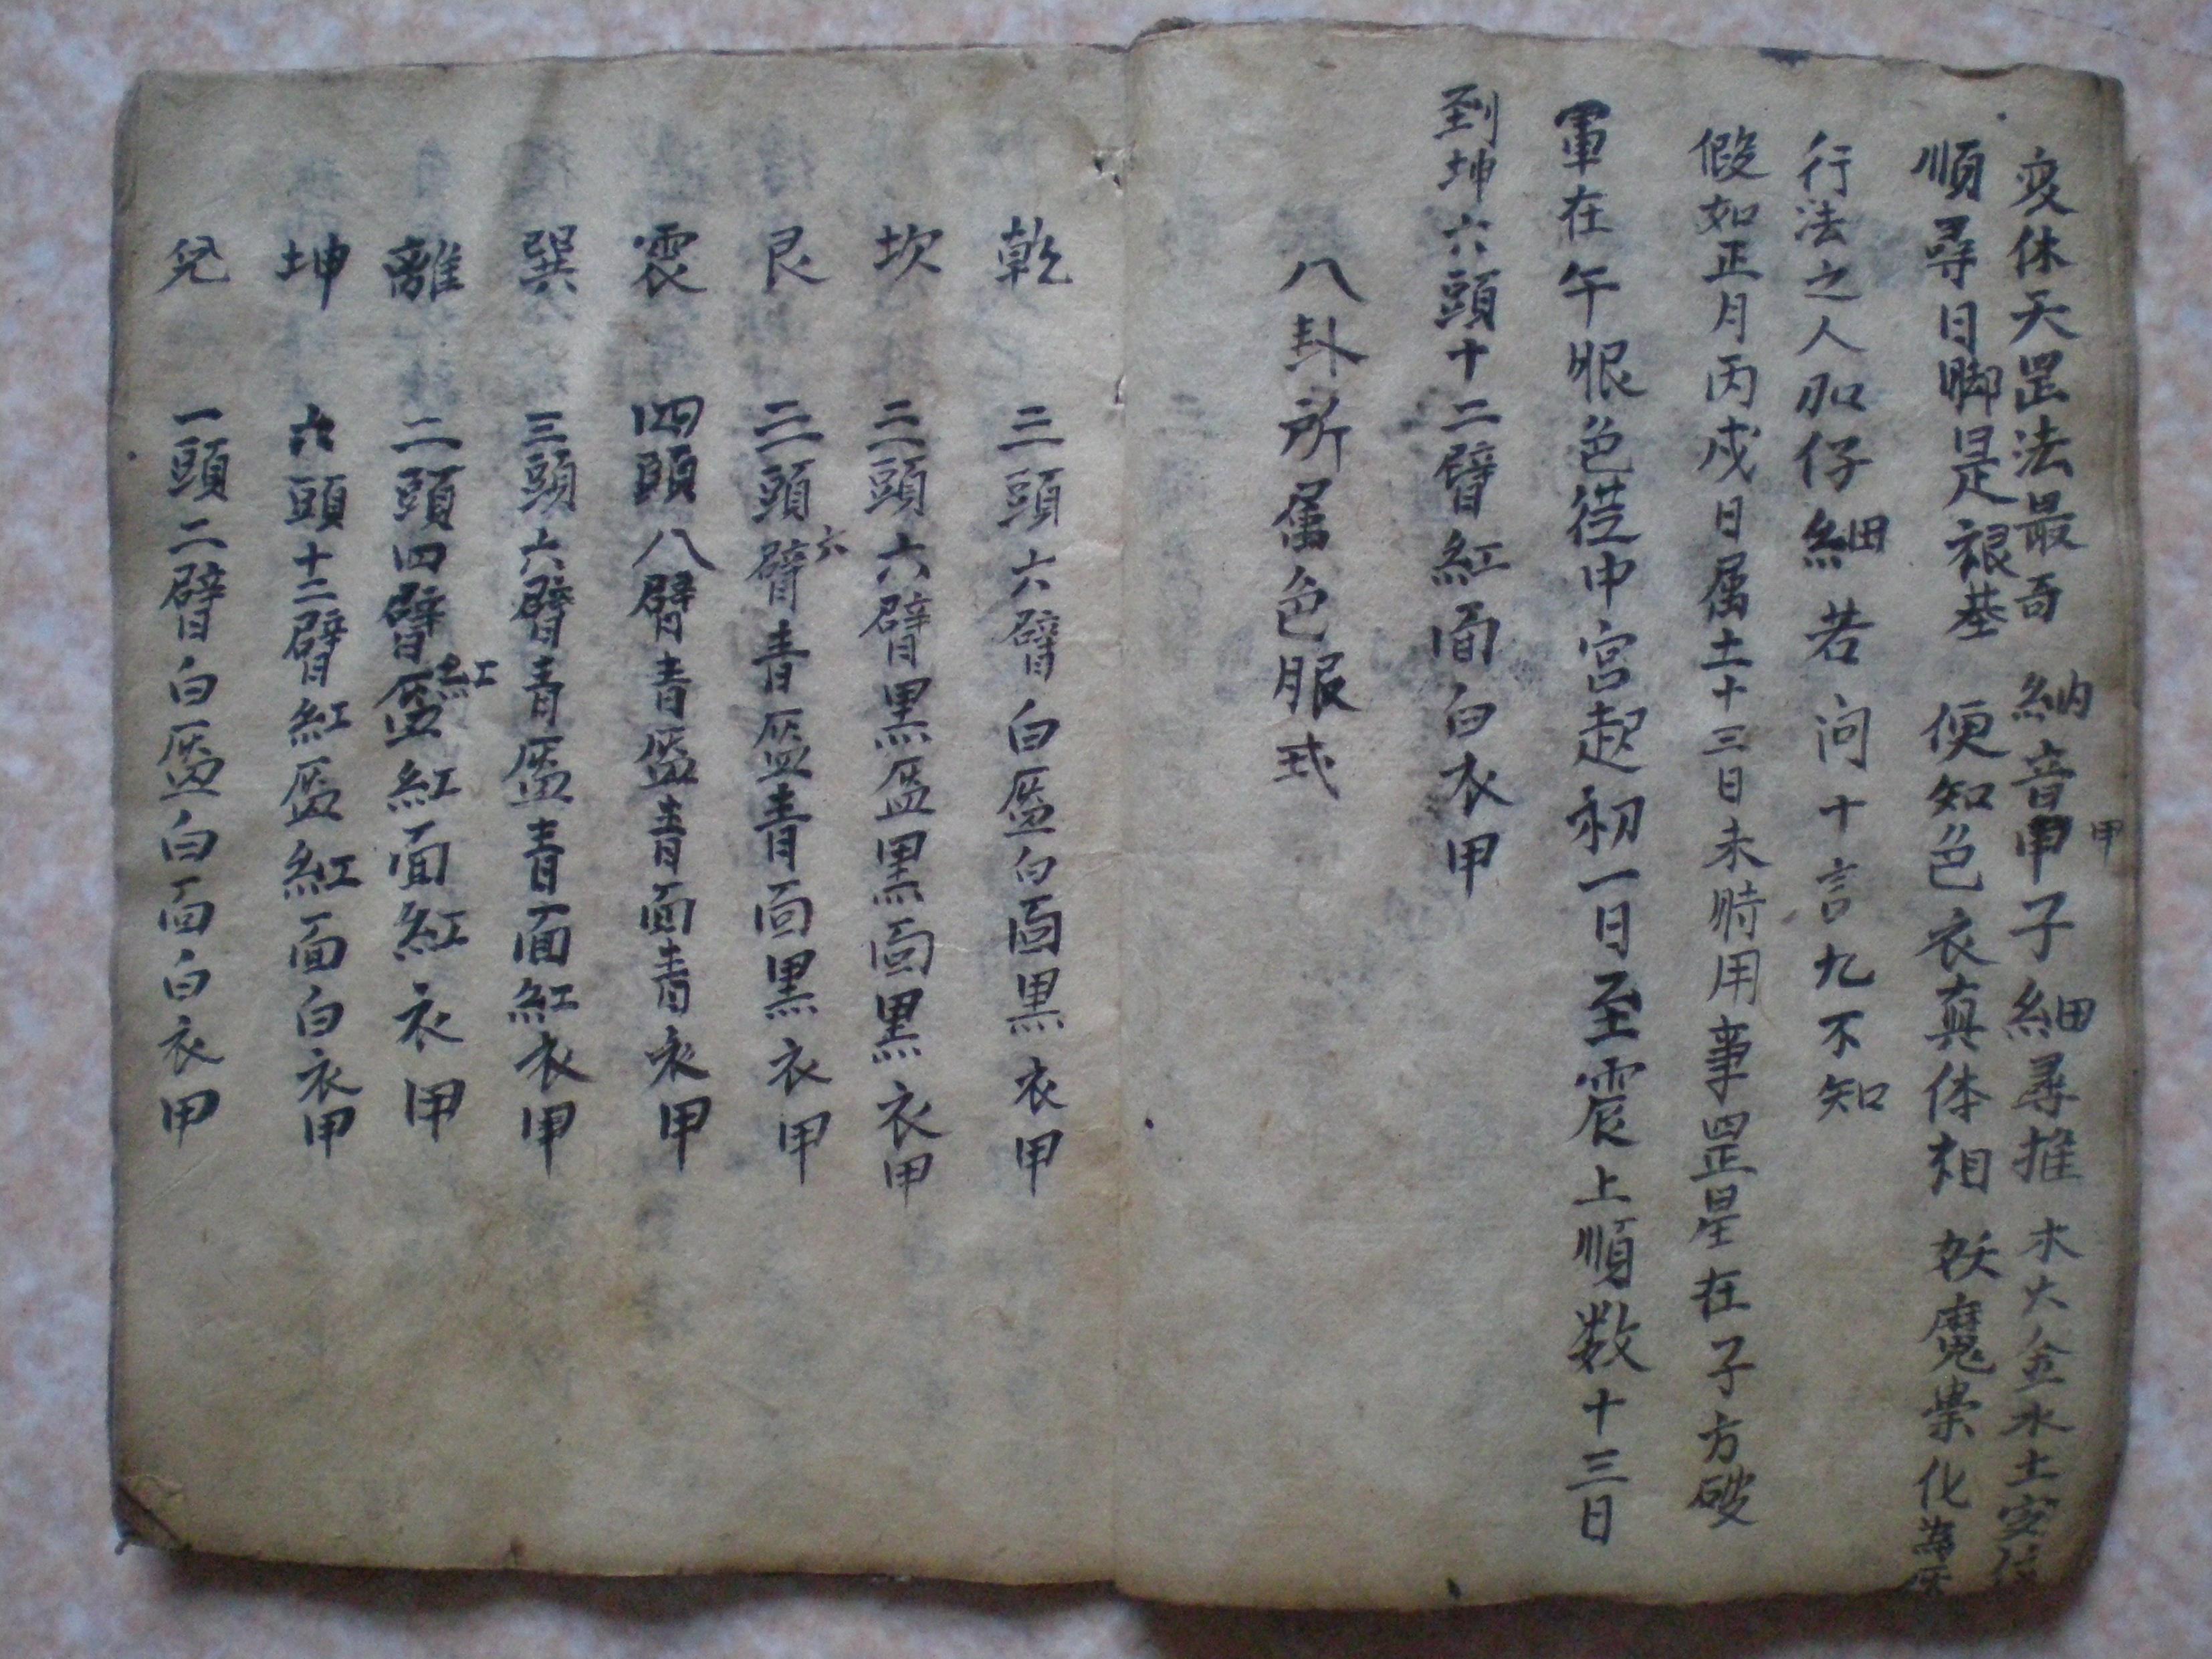 変体天罡法最奇 納音甲子細尋推 水火金水土安
順尋日脚是根基 便知色衣真体相 妖魔祟化為
行法之人加仔細若问十言九不知
假如正月丙戌日属土十三日未時用事罡星在子方破
軍在午眼色從中宮起初一日至震上順数十三日
到坤六頭十二臂紅面白衣甲
八卦所属色服式
乾 三頭六臂白盔白面黑衣甲
坎 三頭六臂黑盔黑面黑衣甲
艮 三頭六臂青盔青面黑衣甲
震 四頭八臂青盔青面青衣甲
巽 三頭六臂青盔青面紅衣甲
離 二頭四臂紅盔紅面紅衣甲
坤 六頭十二臂紅盔紅面白衣甲
兌 一頭二臂白盔白面白衣甲